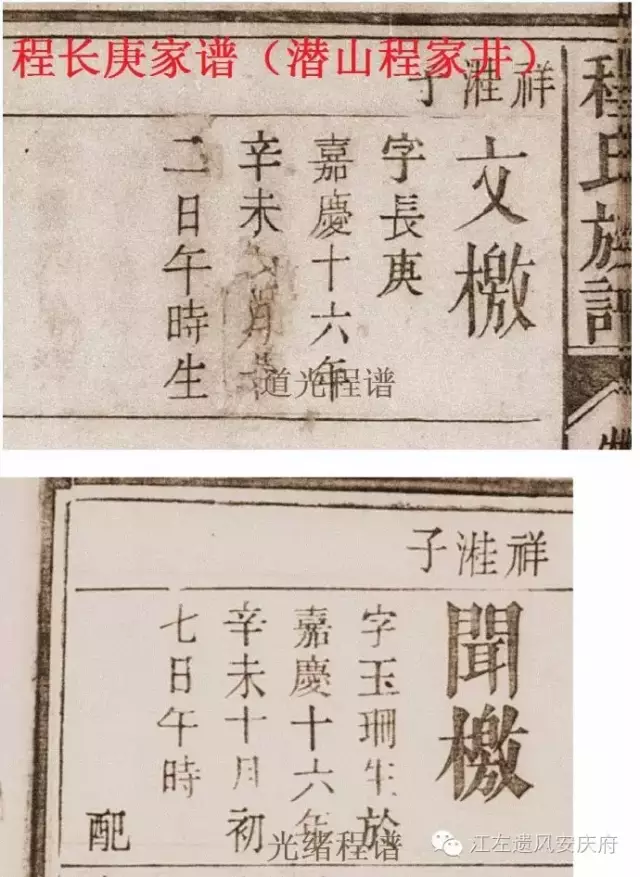 程长庚家谱（潜山程家井）
程氏族譜
祥溎子
文檄
字長庚
嘉慶十六年
辛未 月
二日午時生
道光程谱
祥溎子
聞檄
字玉珊生於
嘉慶十六年
辛未十月初
七日午時
配
光绪程谱
江左遗风安庆府